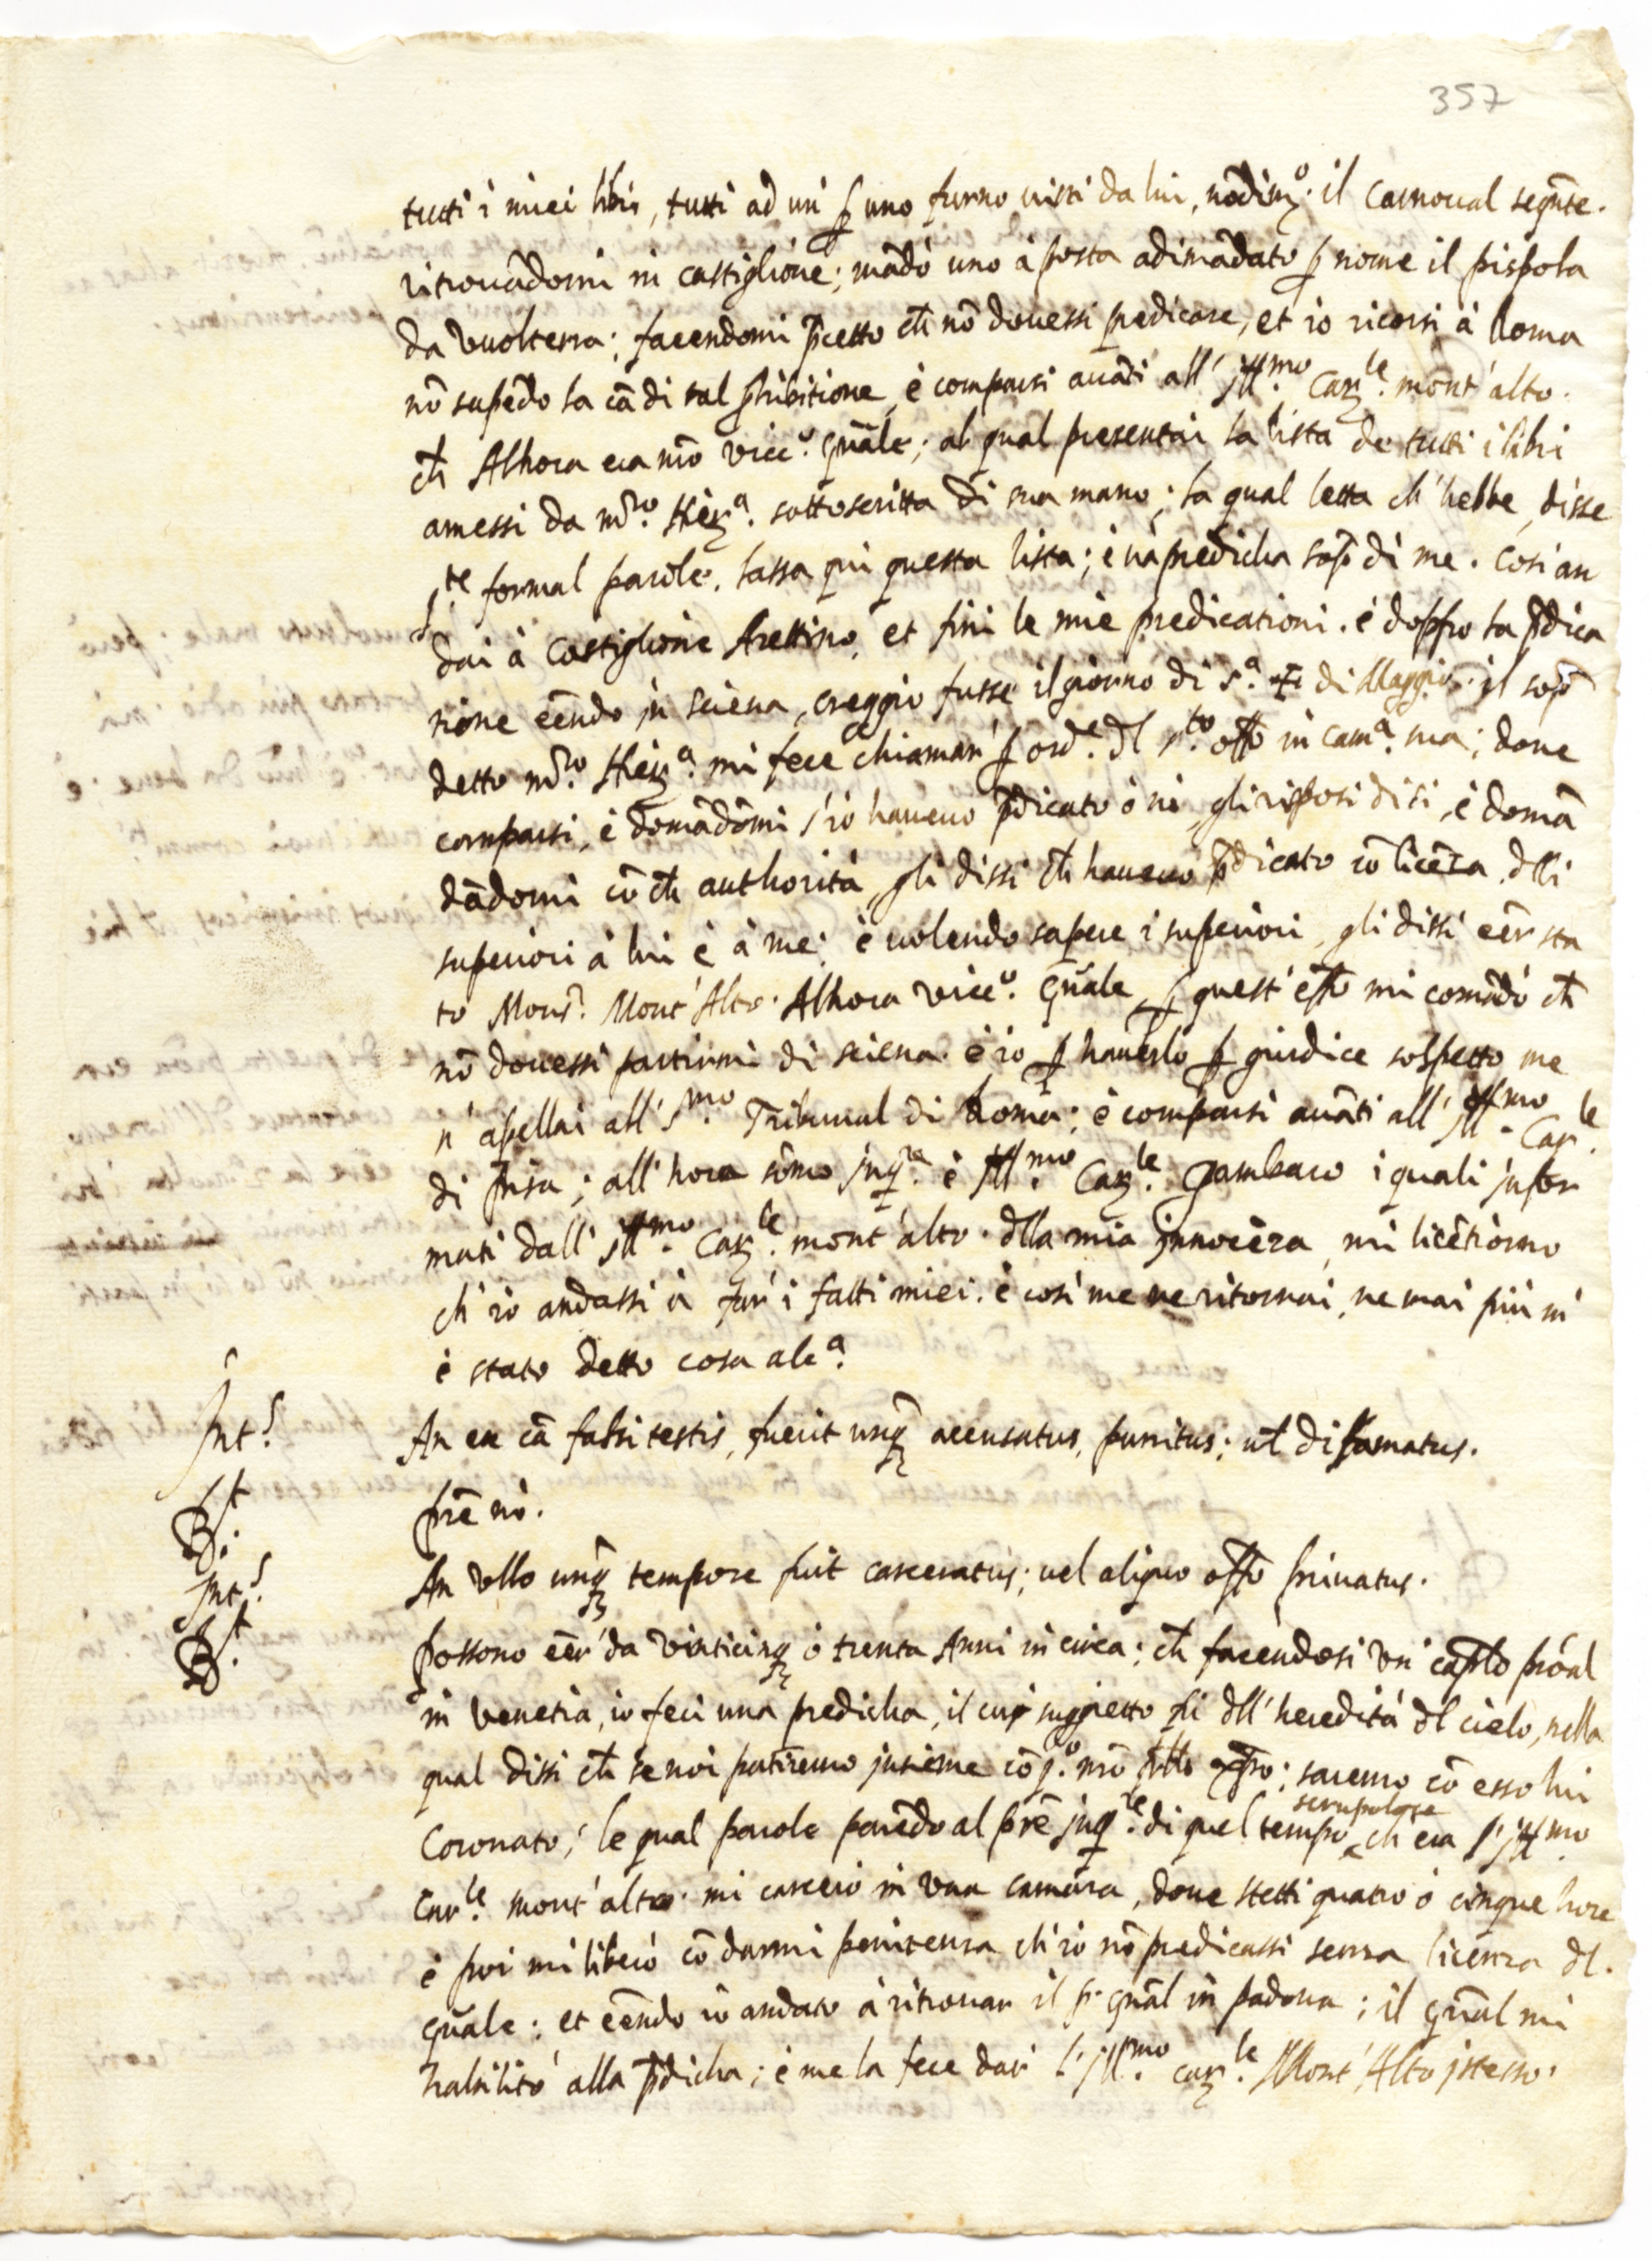 357
tutti i miei libri, tutti ad un ꝑ uno furno visti da lui, nõdimº. il Carnoual segñte.
ritrouãdomi in castiglione; mãdò uno à posta adimãdato ꝑ nome il pispola
da vuolterra; facendomi p̃cetto ch̃ nõ douessi predicare, et io ricorsi à Roma
nõ sapẽdo la cã di tal ꝓhibitione, è comparsi auãti all' Jll.mo Car.le mont'alto.
ch̃ Alhora era nr̃o vicº. gñale; al qual presentai la lista de tutti i libri
amessi da mr̃o. Hierª. sottoscritta di sua mano; la qual letta ch' hebbe, disse
ste formal parole. lassa qui questa lista; è và predicha sop̃ di me. Cosi an
dai à Castiglione Arettino, et finì le mie predicationi. è doppo la p̃dica
tione eẽndo in Sciena, creggio fusse il giorno di sª. ✝ di Maggio. il sop̃
detto mr̃o. Hierª. mi fece chiamar' ꝑ ordᵉ. dl s.to offo in camª. sua; doue
comparsi, è domãdõmi s'io haueuo p̃dicato ò nò, gli risposi di si, è domã
dãdomi cõ ch̃ authorità, gli dissi ch̃ haueuo p̃dicato cõ licẽza dlli
superiori à lui è à me; è uolendo sapere i superiori, gli dissi eẽr sta
to Monsr̃. Mont'Alto. Alhora vicº. gñale, ꝑ quest' effo mi comãdò ch̃
nõ douessi partirmi di sciena. è io ꝑ hauerlo ꝑ giudice sospetto me
n' apellai all' S.mo Tribunal di Roma; è comparsi auãti all' Jll.mo Car.le
di Pisa; all' hora sõmo Jnq.re è Jll.mo Car.le Gambaro i quali jnfor
mati dall' Jll.mo Car.le mont'alto. dlla mia jnnocẽza, mi licẽtiorno
ch' io andassi à far' i fatti miei. è cosi me ne ritornai, ne mai più m'
è stato detto cosa alcª.
Jnt.s An ex cã falsi testis, fuerit unq̃ accusatus, punitus; ul̃ difamatus.
R.t pr̃e nò.
Jnt.s An vllo unq̃ tempore fuit carceratus; uel aliquo offo priuatus.
R.t possono eẽr' da vinticinq̃ ò trenta Anni in circa; ch̃ facendosi un' caplo p̃óal
in venetia, io feci una predicha, il cui suggietto fù dll' heredità dl cielo, nella
qual dissi ch̃ se noi patiremo jnsieme cõ jº. nr̃o frllo xp̃o; saremo cõ esso lui
scrupolose
Coronato, le qual parole parẽdo al pr̃e jnq.re di quel tempo ch' era l' Jll.mo
Car.le mont'alto. mi carcerò in vna camãra, doue stetti quatro ò cinque hore
è poi mi liberò cõ darmi penitenza ch' io nõ predicassi senza licenza dl.
gñale: et eẽndo io andato à ritrouar il p. gñal in padoua; il gñal mi
habilitò alla p̃dicha; è me la fece dar' l' Jll.mo car.le Mont'Alto jstesso.